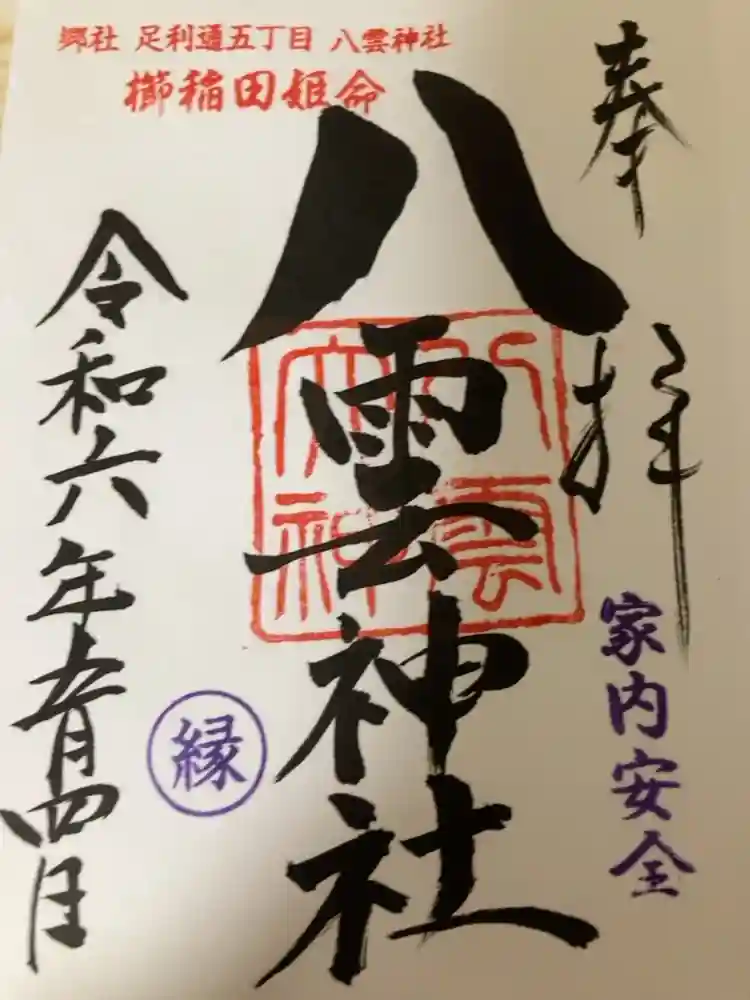 郷社 足利通五丁目 八雲神社
櫛稲田姫命
奉拝
八雲神社
家内安全
縁
令和六年五月四日